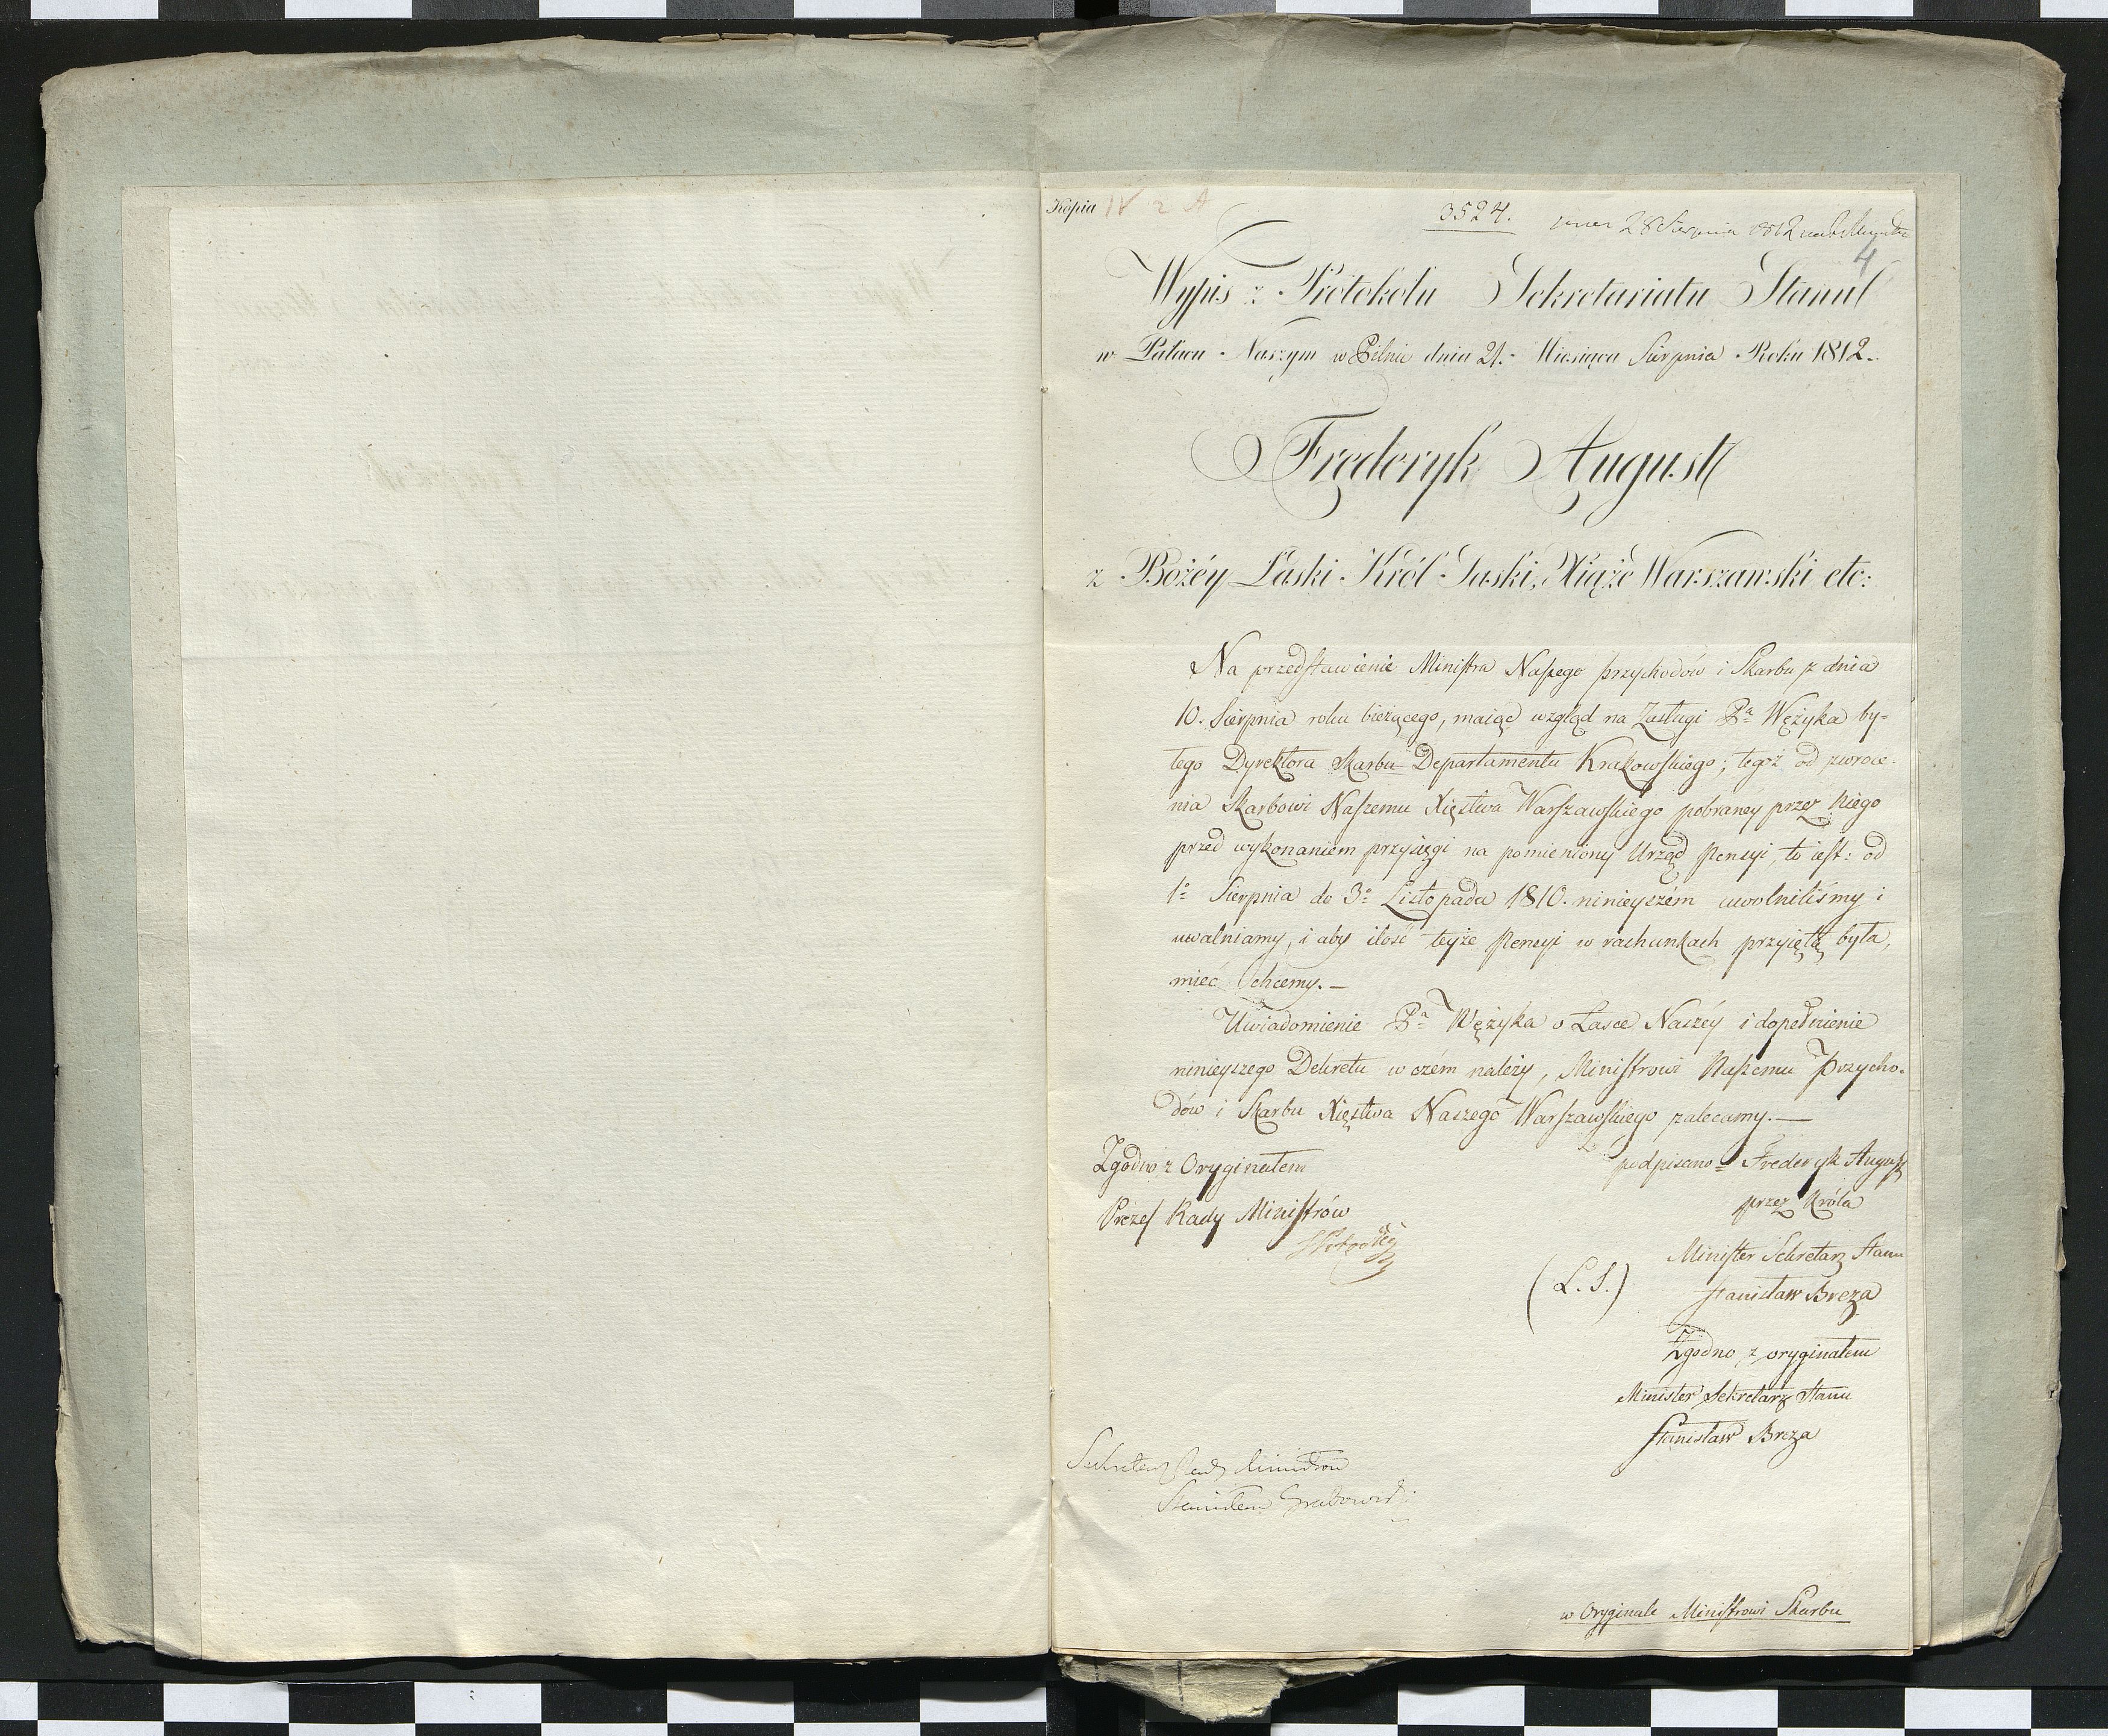 Kopia IV 2 A
3524. 28 Sierpnia 1812
4
Wypis z Protokołu Sekretariatu Stanu
w Pałacu Naszym w Pilnic dnia 21. Miesiąca Sierpnia Roku 1812.
Fryderyk August
z Bożéy Łaski Król Saski, Xiąże Warszawski etc:
Na przedstawienie Ministra Naszego przychodów i Skarbu z dnia
10. Sierpnia roku bieżącego, maiąc wzgląd na Zasługi Pa Wężyka by-
łego Dyrektora Skarbu Departamentu Krakowskiego; tegoż od zwroce-
nia Skarbowi Naszemu Xięstwa Warszawskiego pobraney przez Niego
przed wykonaniem przysięgi na pomieniony Urząd Pensyi, to iest: od
1o Sierpnia do 3o Listopada 1810. ninieyszém uwolniliśmy i
uwalniamy, i aby ilość teyże Pensyi w rachunkach przyiętą była,
mieć chcemy.—
Uwiadomienie Pa Wężyka o Łasce Naszéy i dopełnienie
ninieyszego Dekretu w czém należy, Ministrowi Naszemu Przycho-
dów i Skarbu Xięstwa Naszego Warszawskiego zalecamy.—
Zgodno z Oryginałem
Prezes Rady Ministrów
podpisano = Frederyk August
przez Króla
Minister Sekretarz Stanu
(L.S.) Stanisław Breza
Zgodno z oryginałem
Minister Sekretarz Stanu
Stanisław Breza
Sekretarz Rady Ministrów
Stanisław Grabowski
w Oryginale Ministrowi Skarbu